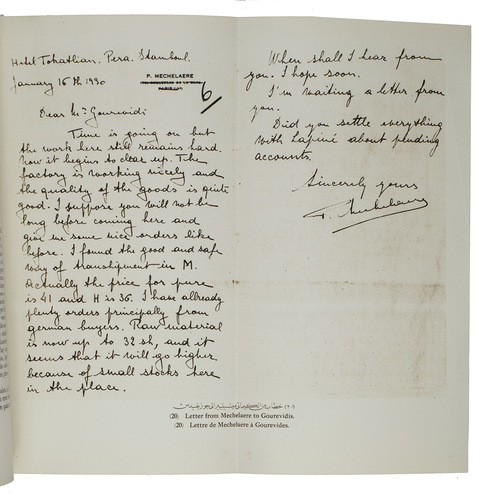 Hotel Tokatlian. Pera. Stamboul.
January 16th 1930
P. MECHELAERE
PARIS
6/
Dear Mr Gourevidi
Time is going on but
the work here still remains hard.
Now it begins to clear up. The
factory is working nicely and
the quality of the goods is quite
good. I suppose you will not be
long before coming here and
give me some nice orders like
before. I found the good and safe
way of transhipment in M.
Actually the price for pure
is 41 and H is 36. I have allready
plenty orders principally from
german buyers. Raw material
is now up to 32 sh, and it
seems that it will go higher
because of small stocks here
in the place.
When shall I hear from
you. I hope soon.
I'm waiting a letter from
you.
Did you settle everything
with Lapiné about pending
accounts.
Sincerely yours
P. Mechelaere
(20) Letter from Mechelaere to Gourevidis.
(20) Lettre de Mechelaere à Gourevides.